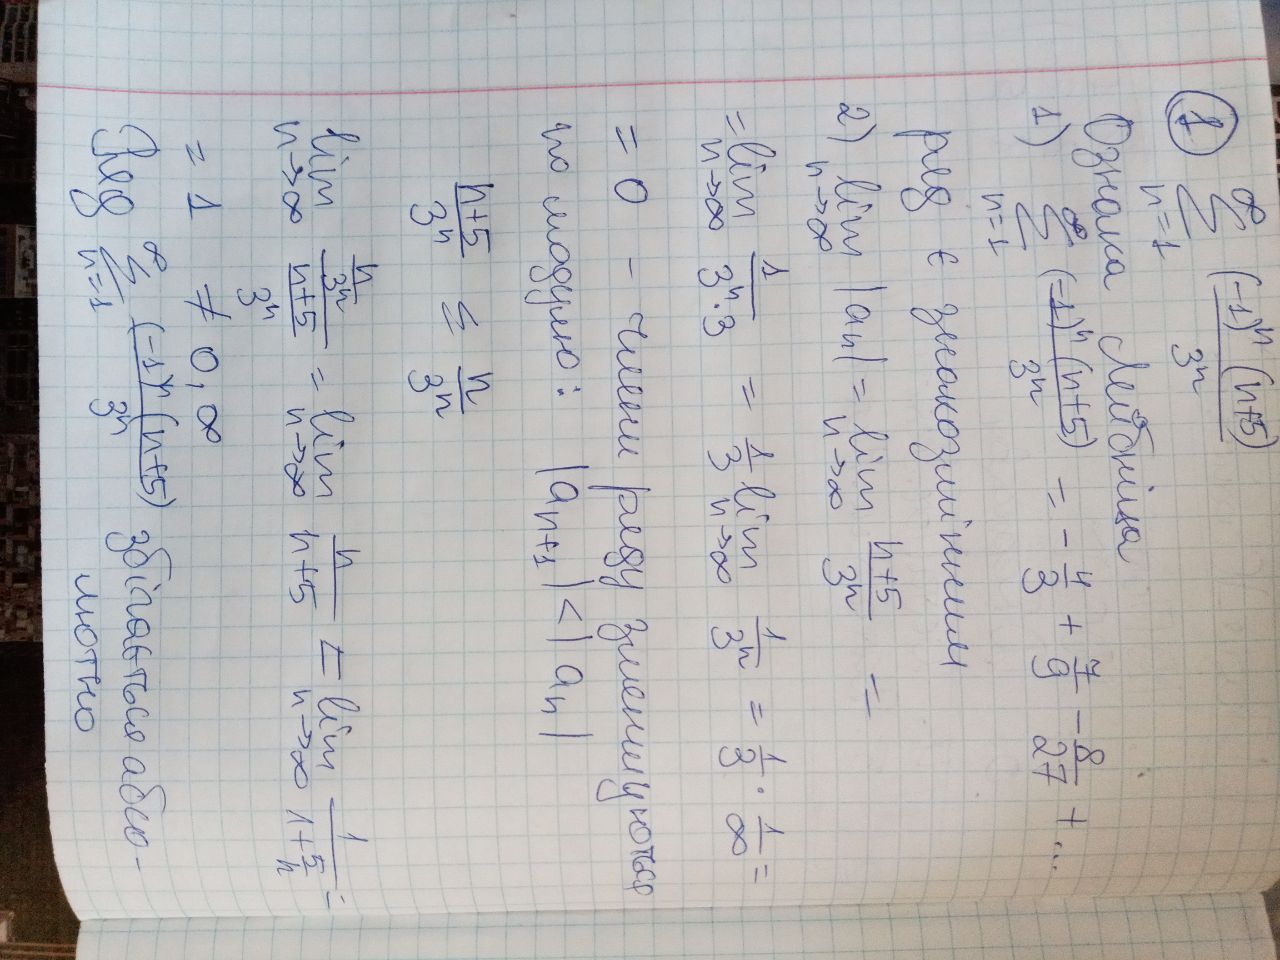 1 ∑_{n=1}^{∞} (-1)^n (n+5) / 3^n
Ознака Лейбніца
1) ∑_{n=1}^{∞} (-1)^n (n+5) / 3^n = - 4/3 + 7/9 - 8/27 + ...
ряд є знакозмінним
2) lim_{n→∞} |a_n| = lim_{n→∞} (n+5)/3^n =
= lim_{n→∞} 1/(3^n·3) = 1/3 lim_{n→∞} 1/3^n = 1/3 · 1/∞ =
= 0 - члени ряду зменшуються
по модулю: |a_{n+1}| < |a_n|
(n+5)/3^n ≤ n/3^n
lim_{n→∞} (n/3^n)/((n+5)/3^n) = lim_{n→∞} n/(n+5) = lim_{n→∞} 1/(1+5/n) =
= 1 ≠ 0, ∞
Ряд ∑_{n=1}^{∞} (-1)^n (n+5) / 3^n збігається абсо-
лютно